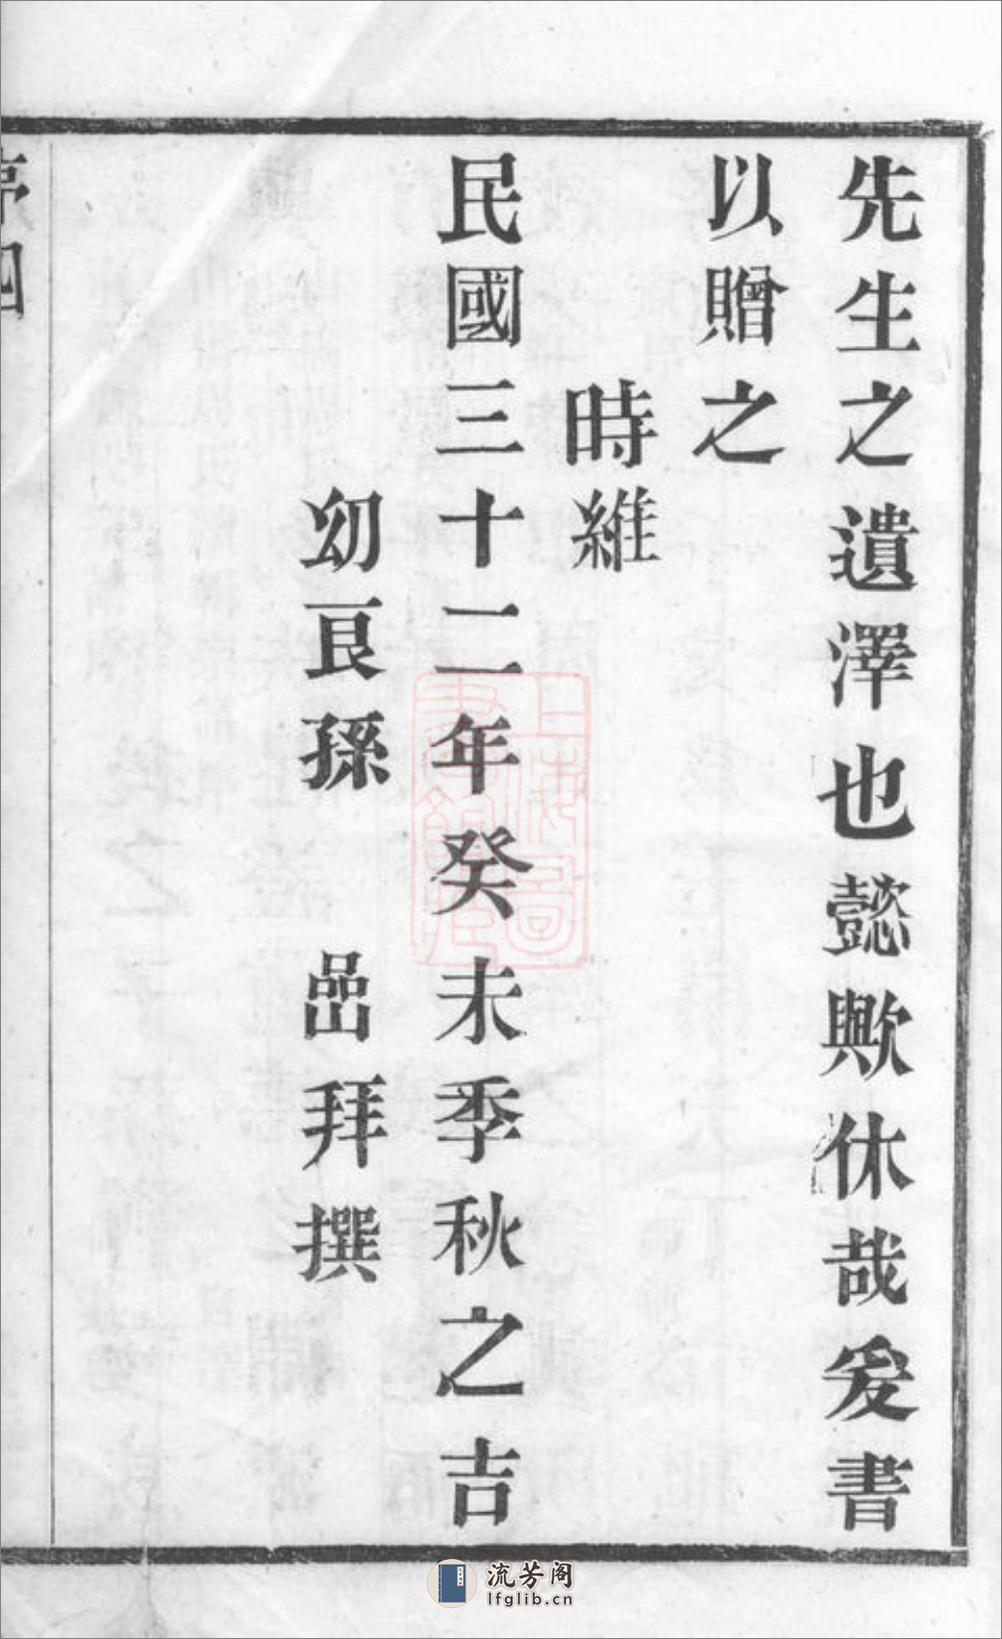 先生之遺澤也懿歟休哉爰書
以贈之
時維
民國三十二年癸未季秋之吉
幼良孫嵒拜撰
序四
上海圖書館藏
流芳阁
lfglib.cn